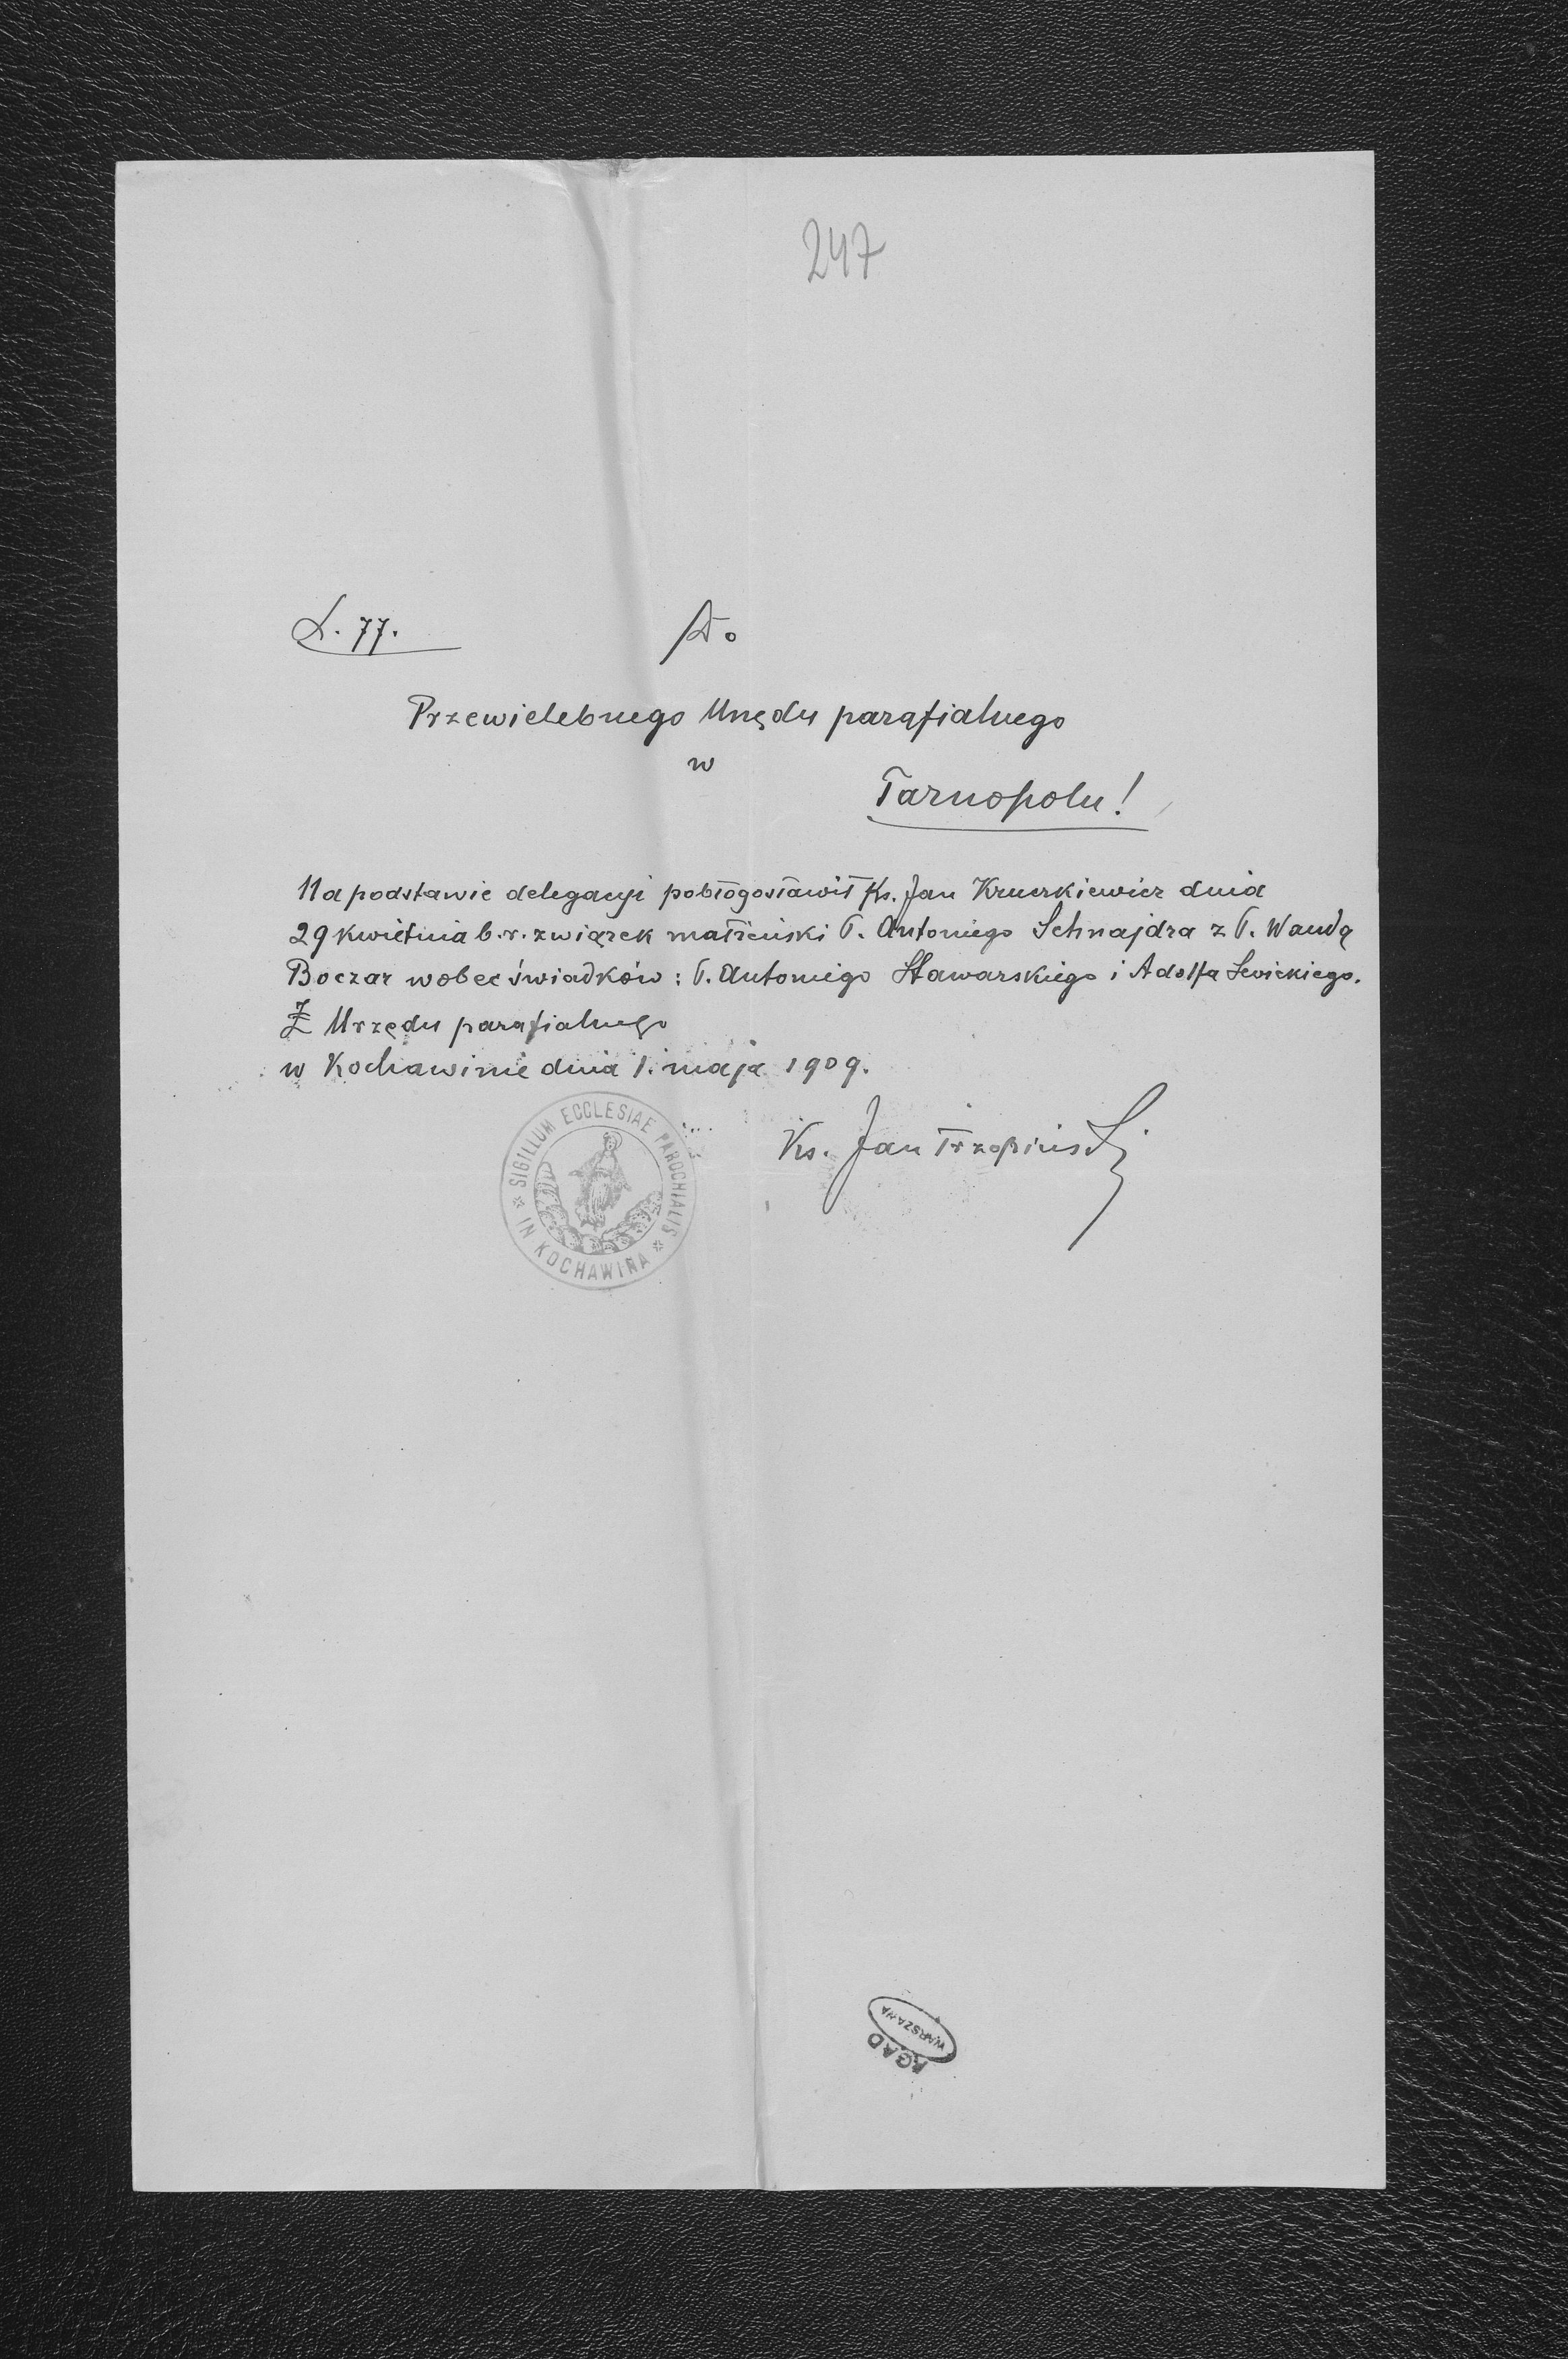 247
L. 77.
Do
Przewielebnego Urzędu parafialnego
w
Tarnopolu!
Na podstawie delegacyi pobłogosławił Ks. Jan dnia
29 kwietnia b.r. związek małżeński P. Antoniego Schnajdra z P. Wandą
Boczar wobec świadków: P. Antoniego Stawarskiego i Adolfa Lewickiego.
Z Urzędu parafialnego
w Kochawinie dnia 1. maja 1909.
Ks. Jan Trzopiński
SIGILLUM ECCLESIAE PAROCHIALIS
IN KOCHAWINA
WARSZAWA
AGAD